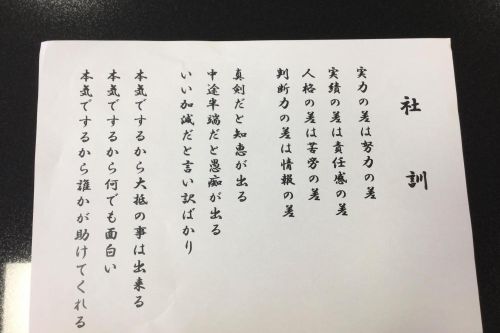 社訓
実力の差は努力の差
実績の差は責任感の差
人格の差は苦労の差
判断力の差は情報の差
真剣だと知恵が出る
中途半端だと愚痴が出る
いい加減だと言い訳ばかり
本気でするから大抵の事は出来る
本気でするから何でも面白い
本気でするから誰かが助けてくれる